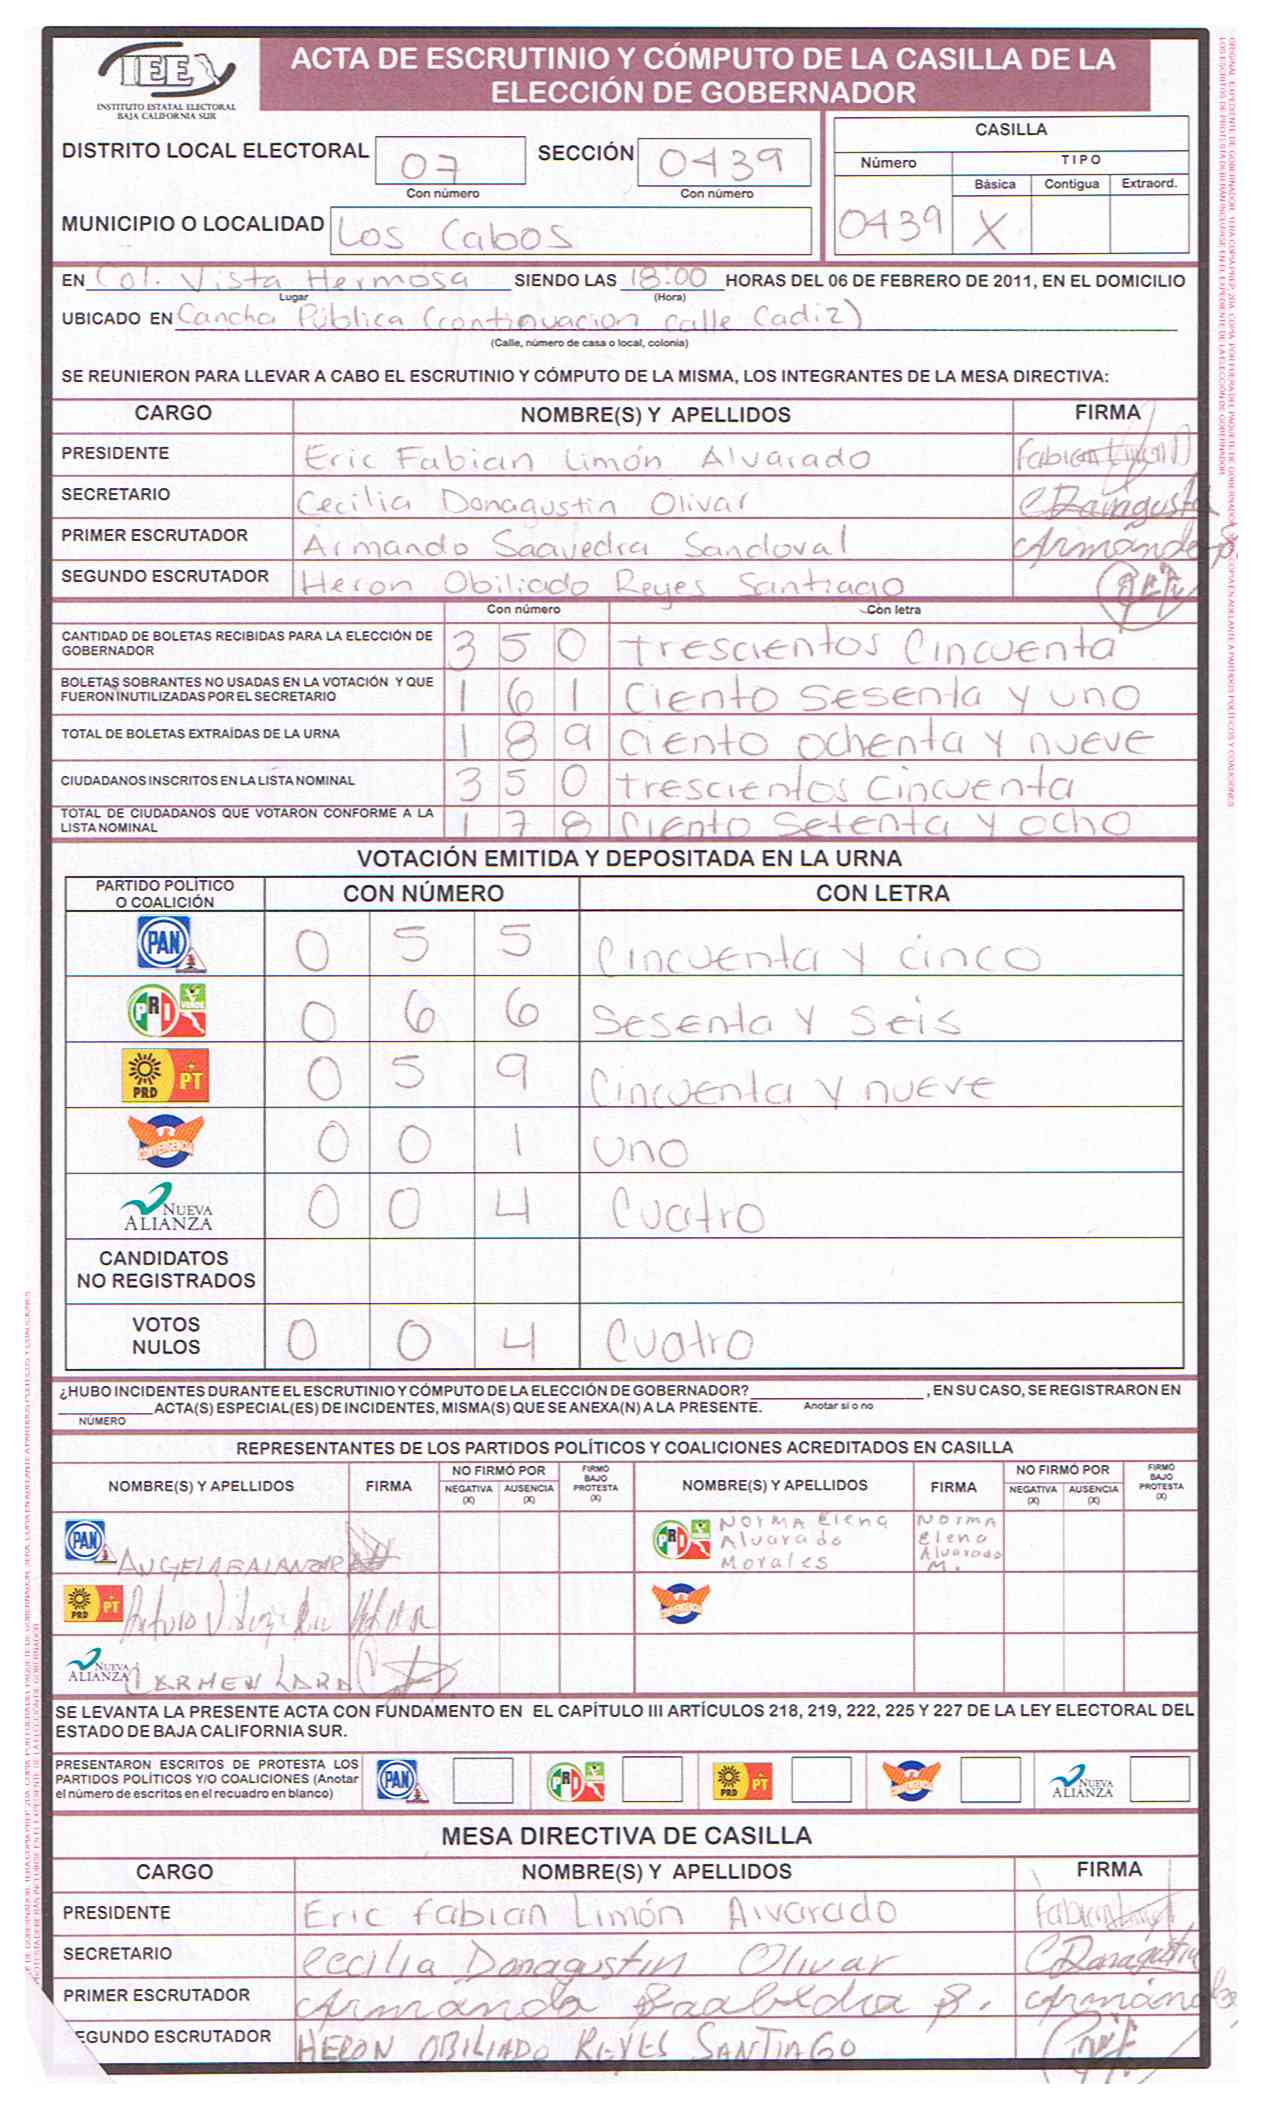 IEE
INSTITUTO ESTATAL ELECTORAL
BAJA CALIFORNIA SUR
ACTA DE ESCRUTINIO Y CÓMPUTO DE LA CASILLA DE LA
ELECCIÓN DE GOBERNADOR
DISTRITO LOCAL ELECTORAL 07 SECCIÓN 0439
Con número Con número
MUNICIPIO O LOCALIDAD Los Cabos
CASILLA
Número TIPO
Básica Contigua Extraord.
0439 X
EN Col. Vista Hermosa SIENDO LAS 18:00 HORAS DEL 06 DE FEBRERO DE 2011, EN EL DOMICILIO
Lugar (Hora)
UBICADO EN Cancha Pública (continuacion calle Cadiz)
(Calle, número de casa o local, colonia)
SE REUNIERON PARA LLEVAR A CABO EL ESCRUTINIO Y CÓMPUTO DE LA MISMA, LOS INTEGRANTES DE LA MESA DIRECTIVA:
CARGO NOMBRE(S) Y APELLIDOS FIRMA
PRESIDENTE Eric Fabian Limón Alvarado
SECRETARIO Cecilia Donagustin Olivar
PRIMER ESCRUTADOR Armando Saavedra Sandoval
SEGUNDO ESCRUTADOR Heron Obiliado Reyes Santiago
Con número Con letra
CANTIDAD DE BOLETAS RECIBIDAS PARA LA ELECCIÓN DE
GOBERNADOR 350 Trescientos Cincuenta
BOLETAS SOBRANTES NO USADAS EN LA VOTACIÓN Y QUE
FUERON INUTILIZADAS POR EL SECRETARIO 161 Ciento sesenta y uno
TOTAL DE BOLETAS EXTRAÍDAS DE LA URNA 189 ciento ochenta y nueve
CIUDADANOS INSCRITOS EN LA LISTA NOMINAL 350 trescientos cincuenta
TOTAL DE CIUDADANOS QUE VOTARON CONFORME A LA
LISTA NOMINAL 178 Ciento setenta y ocho
VOTACIÓN EMITIDA Y DEPOSITADA EN LA URNA
PARTIDO POLÍTICO
O COALICIÓN CON NÚMERO CON LETRA
PAN 0 5 5 Cincuenta y cinco
PRI VERDE 0 6 6 Sesenta y seis
PRD PT 0 5 9 Cincuenta y nueve
CONVERGENCIA 0 0 1 uno
NUEVA ALIANZA 0 0 4 Cuatro
CANDIDATOS
NO REGISTRADOS
VOTOS
NULOS 0 0 4 Cuatro
¿HUBO INCIDENTES DURANTE EL ESCRUTINIO Y CÓMPUTO DE LA ELECCIÓN DE GOBERNADOR? , EN SU CASO, SE REGISTRARON EN
ACTA(S) ESPECIAL(ES) DE INCIDENTES, MISMA(S) QUE SE ANEXA(N) A LA PRESENTE. Anotar si o no
NÚMERO
REPRESENTANTES DE LOS PARTIDOS POLÍTICOS Y COALICIONES ACREDITADOS EN CASILLA
NOMBRE(S) Y APELLIDOS FIRMA NO FIRMÓ POR NEGATIVA (X) AUSENCIA (X) FIRMÓ BAJO PROTESTA (X) NOMBRE(S) Y APELLIDOS FIRMA NO FIRMÓ POR NEGATIVA (X) AUSENCIA (X) FIRMÓ BAJO PROTESTA (X)
PAN
PRI Norma Elena Alvarado Morales Norma Elena Alvarado M.
PRD PT Arturo
CONVERGENCIA
NUEVA ALIANZA CARMEN LARA
SE LEVANTA LA PRESENTE ACTA CON FUNDAMENTO EN EL CAPÍTULO III ARTÍCULOS 218, 219, 222, 225 Y 227 DE LA LEY ELECTORAL DEL
ESTADO DE BAJA CALIFORNIA SUR.
PRESENTARON ESCRITOS DE PROTESTA LOS
PARTIDOS POLÍTICOS Y/O COALICIONES (Anotar
el número de escritos en el recuadro en blanco) PAN PRI PRD PT CONVERGENCIA NUEVA ALIANZA
MESA DIRECTIVA DE CASILLA
CARGO NOMBRE(S) Y APELLIDOS FIRMA
PRESIDENTE Eric Fabian Limón Alvarado
SECRETARIO Cecilia Donagustin Olivar
PRIMER ESCRUTADOR Armando Saabedra S.
SEGUNDO ESCRUTADOR HERON OBILIADO REYES SANTIAGO